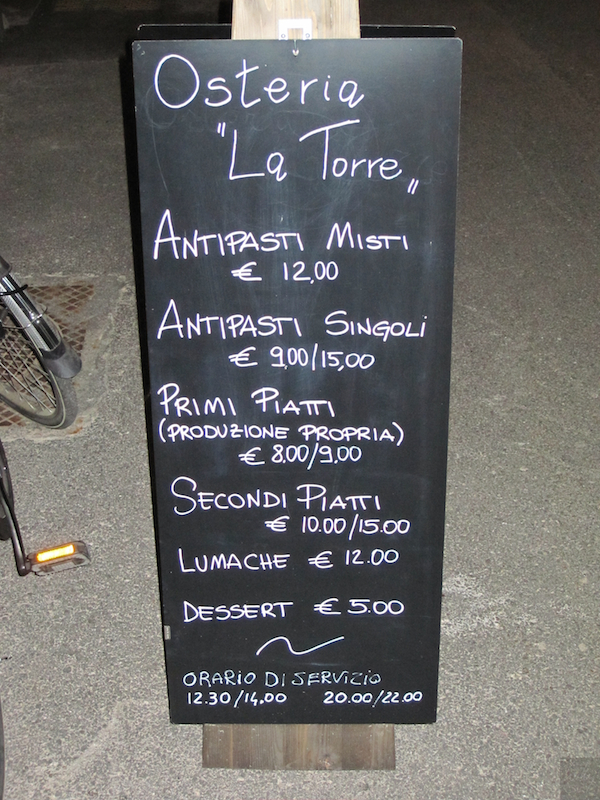 Osteria
"La Torre"
ANTIPASTI MISTI
€ 12,00
ANTIPASTI SINGOLI
€ 9,00/15,00
PRIMI PIATTI
(PRODUZIONE PROPRIA)
€ 8,00/9,00
SECONDI PIATTI
€ 10.00/15.00
LUMACHE € 12.00
DESSERT € 5.00
ORARIO DI SERVIZIO
12.30/14,00 20.00/22.00